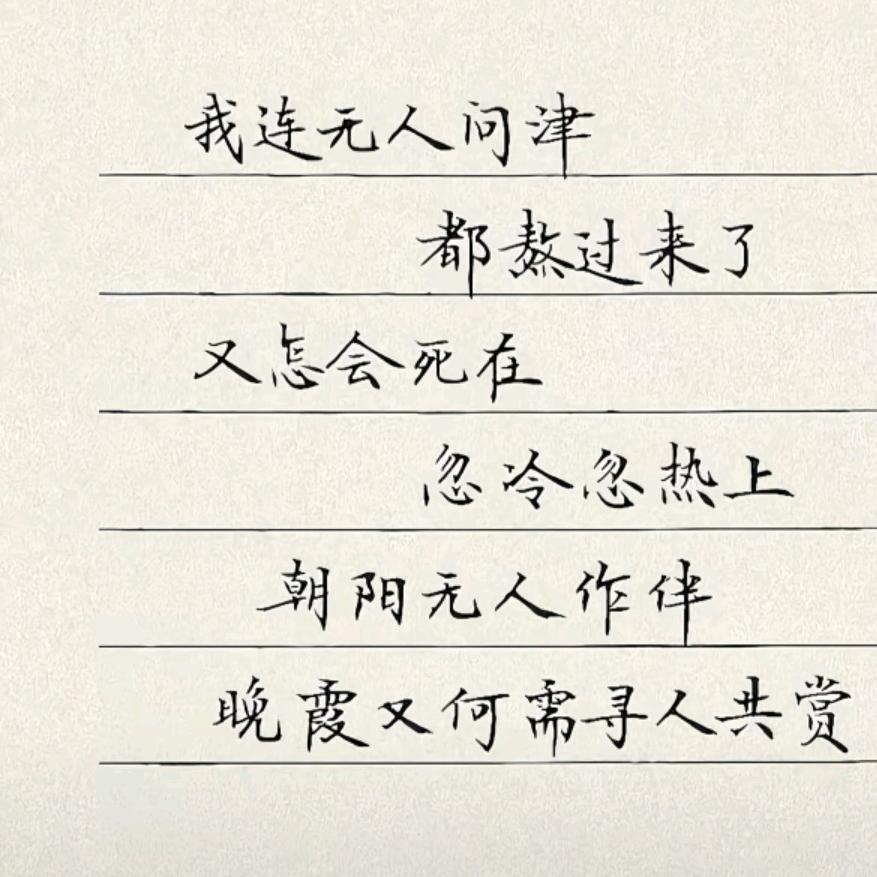 我连无人问津
都熬过来了
又怎会死在
忽冷忽热上
朝阳无人作伴
晚霞又何需寻人共赏